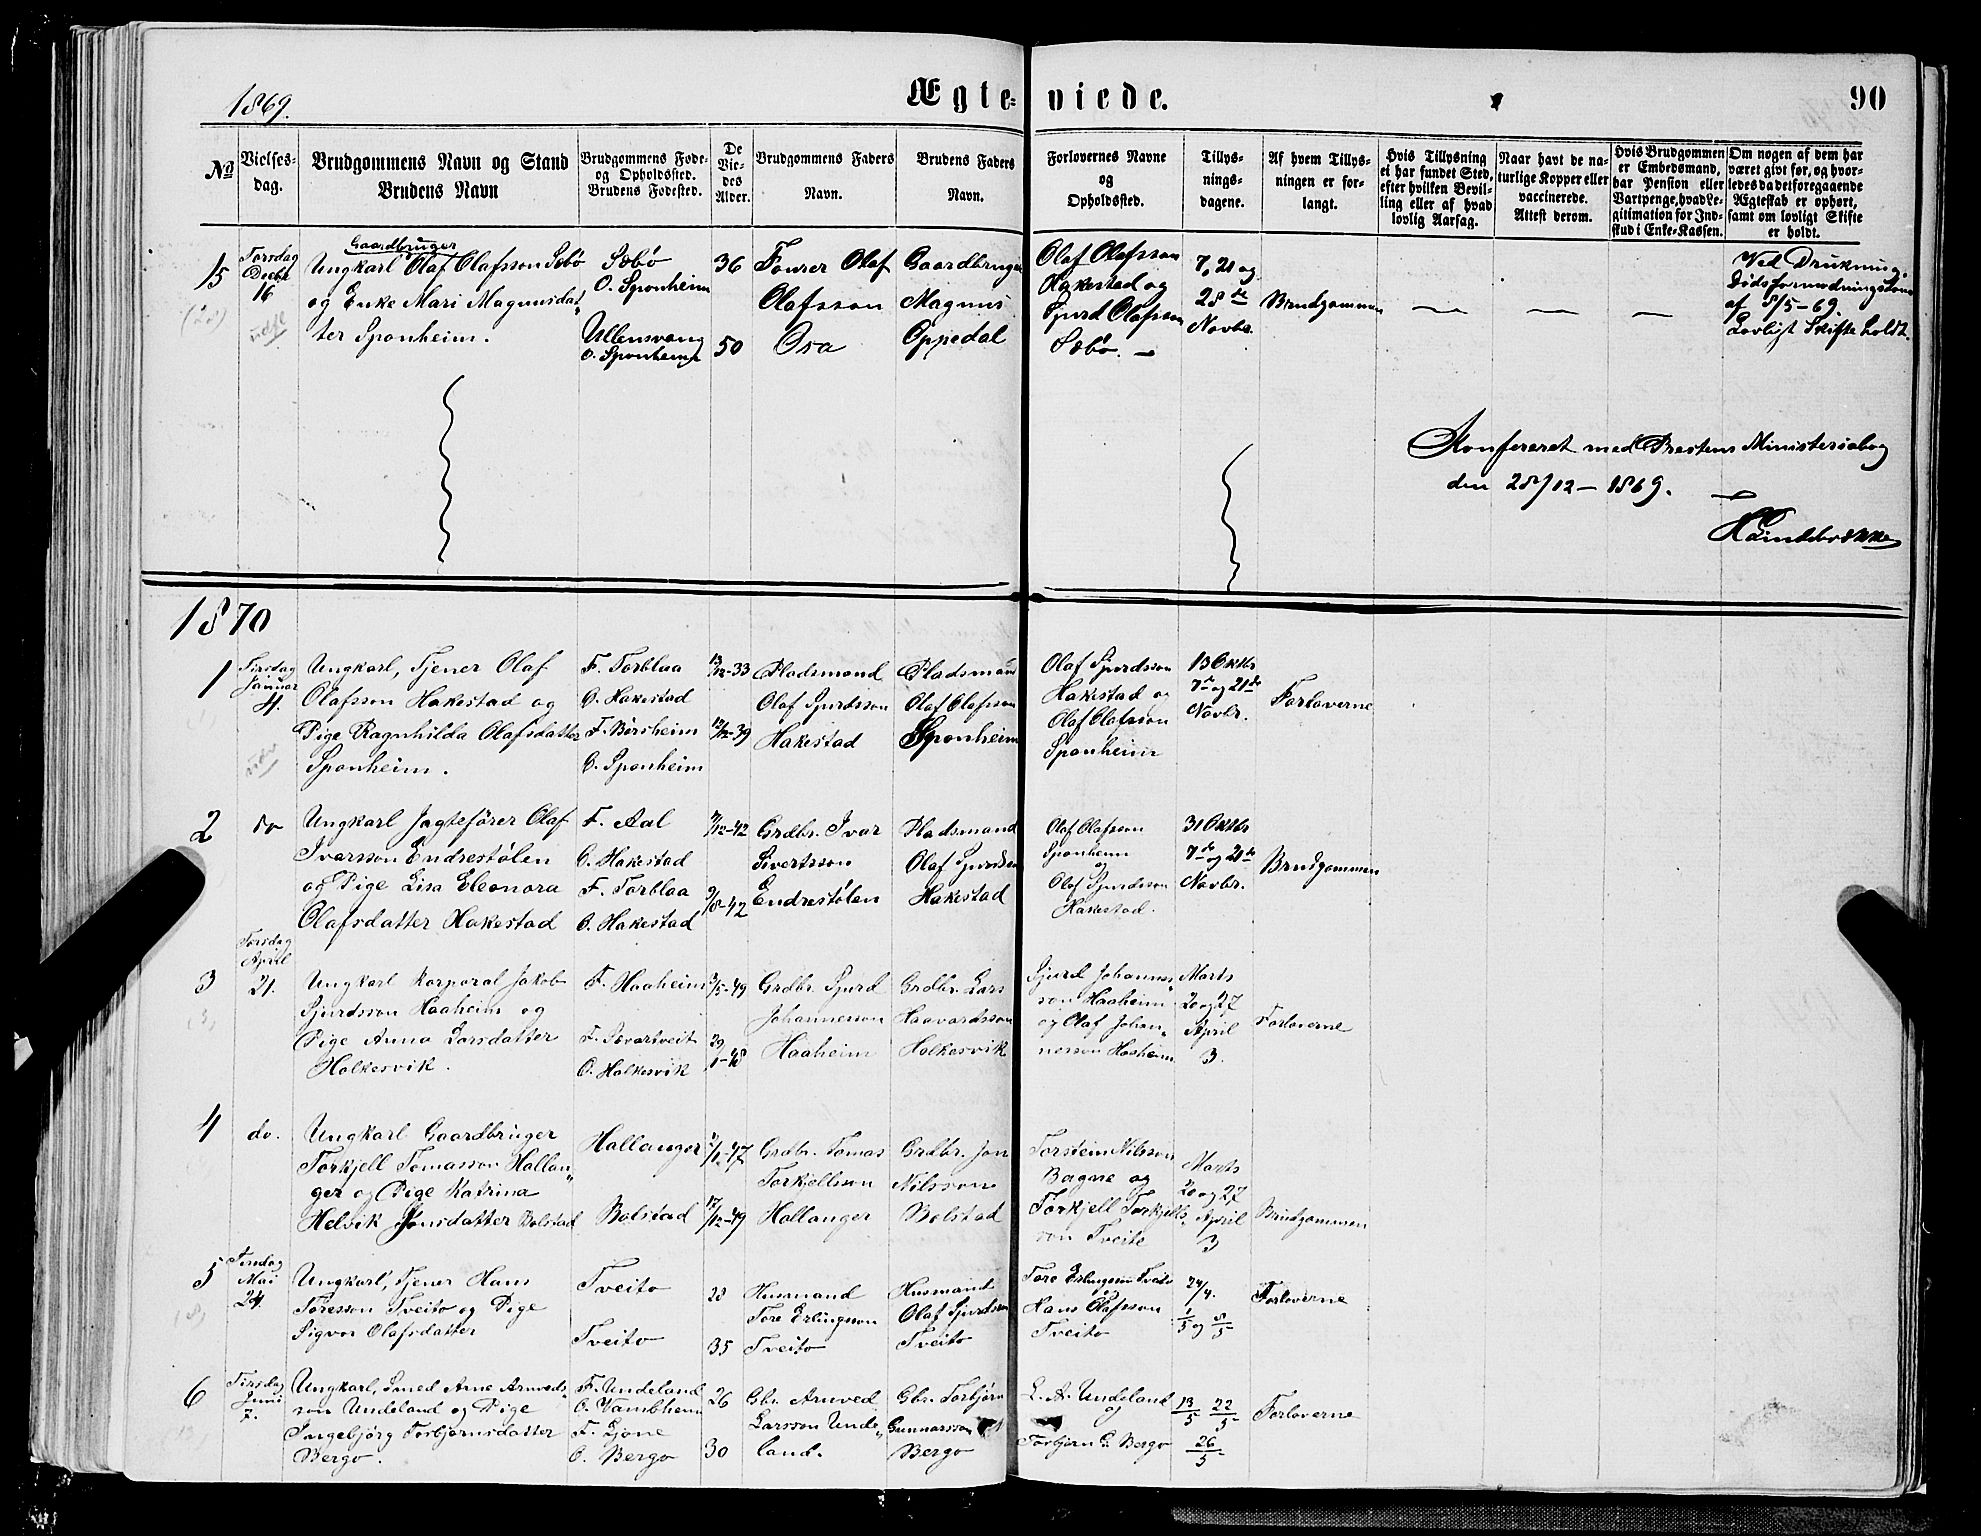 1869.
Ægteviede.
90
No
Vielses-
dag.
Brudgommens Navn og Stand
Brudens Navn
Brudgommens Føde-
og Opholdssted.
Brudens Fødested.
De
Vie-
des
Alder.
Brudgommens Faders
Navn.
Brudens Faders
Navn.
Forlovernes Navne
og
Opholdssted.
Tillys-
nings-
dagene.
Af hvem Tillys-
ningen er for-
langt.
Hvis Tillysning
ei har fundet Sted,
efter hvilken Bevil-
ling eller af hvad
lovlig Aarsag.
Naar havt de na-
turlige Kopper eller
vaccinerede.
Attest derom.
Hvis Brudgommen
er Embedsmand,
har Pension eller
Vartpenge, hvad Le-
gitimation for Ind-
skud i Enke-Kassen.
Om nogen af dem har
været givt før, og hvor-
ledes da det foregaaende
Ægteskab er ophørt,
samt om lovligt Skifte
er holdt.
15
Torsdag
Decbr
16
Gaardbruger
Ungkarl Olaf Olafsson Sæbø
og Enke Mari Magnusdat„
ter Sponheim.
Sæbø
O. Sponheim
Ullensvang
O. Sponheim
36
50
Fourer Olaf
Olafsson
Osa
Gaardbruger
Magnus
Oppedal
Olaf Olafsson
Hakestad og
Sjurd Olafsson
Sæbø. —
7, 21 og
28de
Novbr.
Brudgommen
— — —
Ved Drukning.
af 8/5-69.
Lovligt Skifte holdt.
Konfereret med Prestens Ministerialbog
den 28/12 — 1869.
1870
1
Tirsdag
Januar
4.
Ungkarl, Tjener Olaf
Olafsson Hakestad og
Pige Ragnhilda Olafsdatter
Sponheim.
F. Torblaa
O. Hakestad
F. Børsheim
O. Sponheim
13/12-33
12/12-39
Pladsmand
Olaf Sjurdsson
Hakestad
Pladsmand
Olaf Olafsson
Sponheim
Olaf Sjurdsson
Hakestad og
Olaf Olafsson
Sponheim
13 Oktbr
7de og 21de
Novbr.
Forloverne
2
do
Ungkarl Jagtefører Olaf
Ivarsson Endrestølen
og Pige Lisa Eleonora
Olafsdatter Hakestad
F. Aal
O. Hakestad
F. Torblaa
O. Hakestad
7/12-42
9/8-42
Grdbr. Ivar
Sivertsson
Endrestølen
Pladsmand
Olaf Sjurdsson
Hakestad
Olaf Olafsson
Sponheim
og
Olaf Sjurdsson
Hakestad.
31 Oktbr
7de og 21de
Novbr.
Brudgommen
3
Torsdag
April
21.
Ungkarl Korporal Jakob
Sjurdsson Haaheim og
Pige Anna Larsdatter
Halkesvik.
F. Haaheim
F. Svartveit
O. Halkesvik
3/5-49
Grdbr. Sjurd
Johannesson
Haaheim
Grdbr. Lars
Haavardsson
Halkesvik
Sjurd Johannes„
son Haaheim
og Olaf Johan„
nesson Haaheim
Marts
20 og 27
April
3.
Forloverne
4
do.
Ungkarl Gaardbruger
Torkjell Tomasson Hallan„
ger og Pige Katrina
Helvik Jonsdatter Bolstad
Hallanger
Bolstad
17/12-49
Grdbr. Tomas
Torkjellson
Hallanger
Grdbr. Jon
Nilsson
Bolstad
Torstein Nilsson
Bagne og
Torkjell Torkjells„
son Tveite
Marts
20 og 27
April
3
Brudgommen
5
Tirsdag
Mai
24.
Ungkarl, Tjener Hans
Toresson Tveito og Pige
Sigvor Olafsdatter
Tveito
Tveito
28
35
Husmand
Tore Erlingson
Tveito
Husmand
Olaf Sjurdsson
Tveito
Tore Erlingson Tveito
Hans Olafsson
Tveito
24/4.
1/5 og 8/5
Forloverne
6
Tirsdag
Juni
7.
Ungkarl, Smed Arne Arnveds„
son Undeland og Pige
Ingebjørg Torbjørnsdatter
Bergo.
F. Undeland
O. Vambheim
F. Djøne
O. Bergo
26
30
Gbr. Arnved
Larsson Unde„
land.
Gbr. Torbjørn
Gunnarsson
Bergo
L. A. Undeland
og
Torbjørn G. Bergo
13/5 22/5
26/5
Forloverne